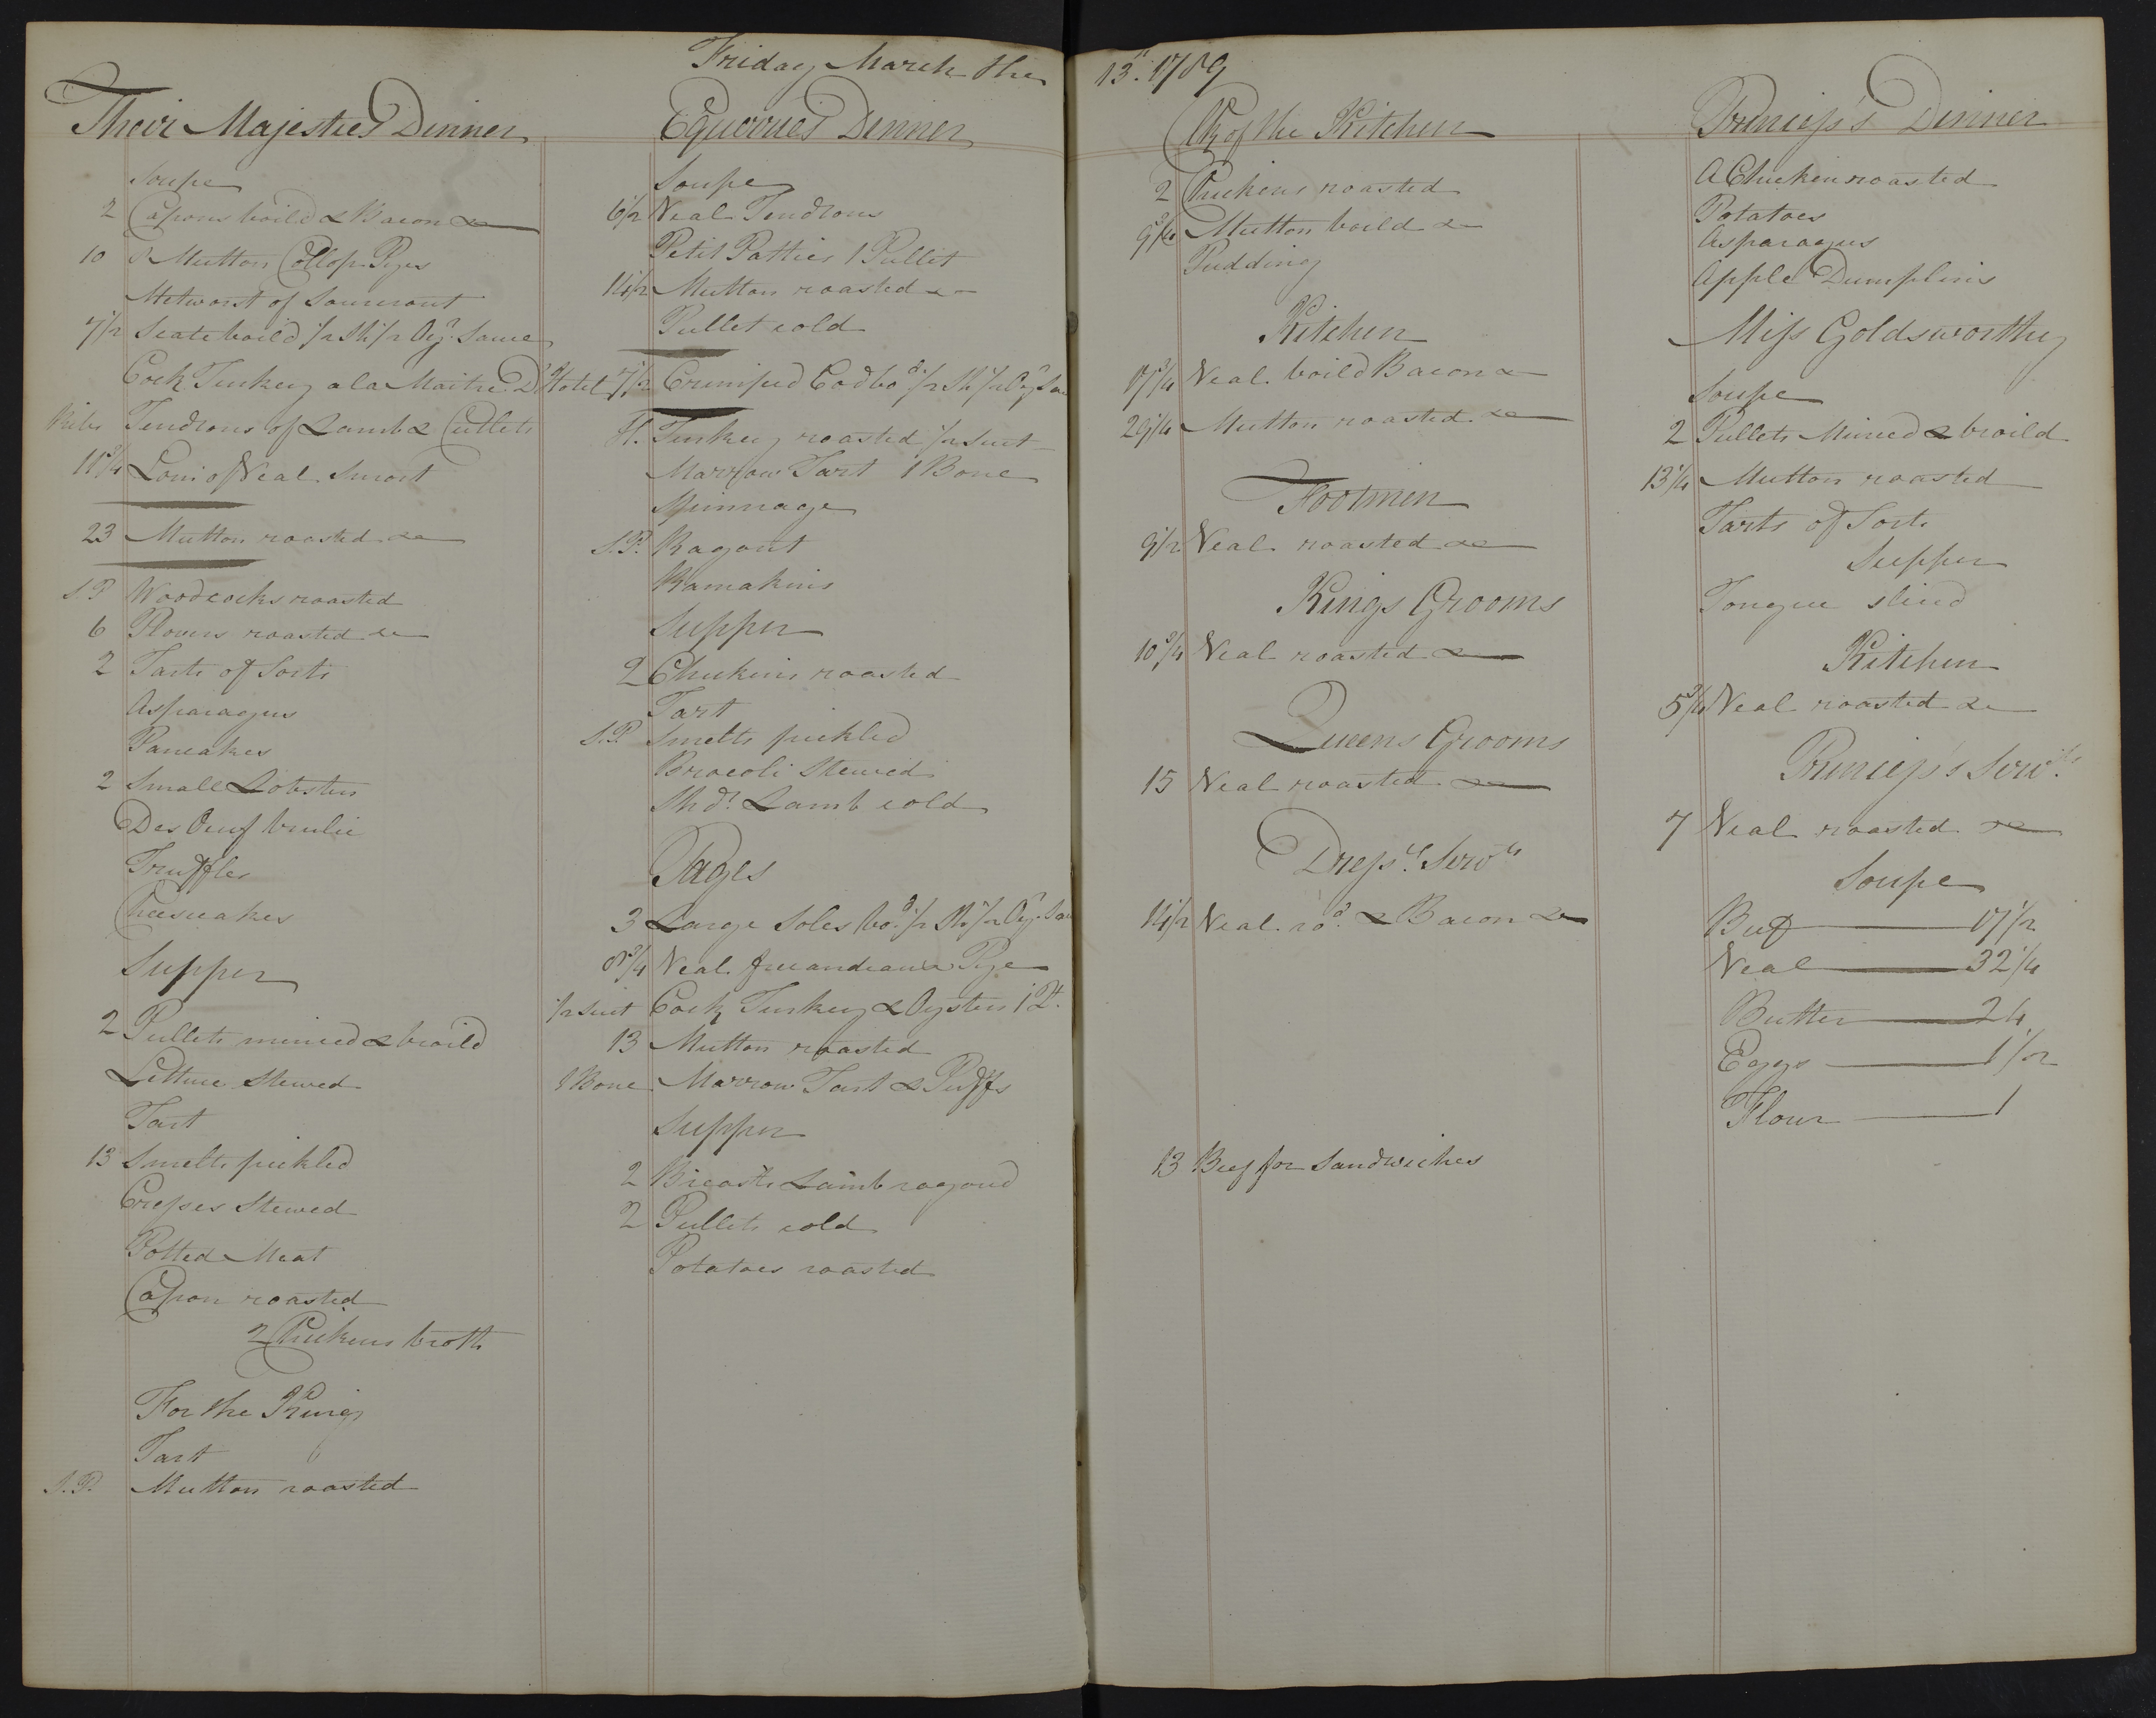 Friday March the 13th. 1789
Their Majesties Dinner
Soupe
2 Capons boild & Bacon &c
10 Mutton Collop Pyes
Metworst of Sourcrout
7 1/2 Scate boild 1/2 Sh 1/2 Oyr. Sauce
Cock Turkey a la Maitre D'Hotel
Ribs Tendrons of Lamb & Cutlets
11 3/4 Loin of Veal Smort
23 Mutton roasted &c
S.P. Woodcocks roasted
6 Plovers roasted &c
2 Tarts of Sorts
Asparagus
Pancakes
2 Small Lobsters
Des Oeuf brulie
Truffles
Cheescakes
Supper
2 Pullets minced & broild
Lettuce Stewed
Tart
13 Smelts pickled
Cresses Stewed
Potted Meat
Capon roasted
2 Chickens broth
For the King
Tart
S.P. Mutton roasted
Equerries Dinner
Soupe
6 1/2 Veal Tendrons
Petit Patties 1 Pullet
14 1/2 Mutton roasted &c
Pullet cold
7 1/2 Crimped Cod bod. 1/2 Sh 1/2 Oyr. Sau
Turkey roasted 1/2 Suet
Marrow Tart 1 Bone
Spinnage
S.P. Ragout
Ramakins
Supper
2 Chickens roasted
Tart
S.P. Smelts pickled
Brocoli Stewed
Shdr. Lamb cold
Pages
3 Large Soles bod. 1/2 Sh 1/2 Oyr. Sau
8 3/4 Veal freandeaux Pye
1/2 Suet Cock Turkey & Oysters 1 Qt.
13 Mutton roasted
1 Bone Marrow Tart & Puffs
Supper
2 Breasts Lamb ragoud
2 Pullets cold
Potatoes roasted
Clk of the Kitchen
2 Chickens roasted
9 3/4 Mutton boild &c
Pudding
Kitchen
17 3/4 Veal boild Bacon &c
29 1/4 Mutton roasted &c
Footmen
9 1/2 Veal roasted &c
Kings Grooms
10 3/4 Veal roasted &c
Queens Grooms
15 Veal roasted &c
Dressrs. Servts
14 1/2 Veal rod. & Bacon &c
13 Beef for Sandwiches
Princess's Dinner
A Chicken roasted
Potatoes
Asparagus
Apple Dumplins
Miss Goldsworthy
Soupe
2 Pullets Minced & broild
13 1/4 Mutton roasted
Tarts of Sorts
Supper
Tongue sliced
Kitchen
5 3/4 Veal roasted &c
Princess's Servts.
7 Veal roasted &c
Soupe
Beef 17 1/2
Veal 32 1/4
Butter 24
Eggs 1 1/2
Flour 1